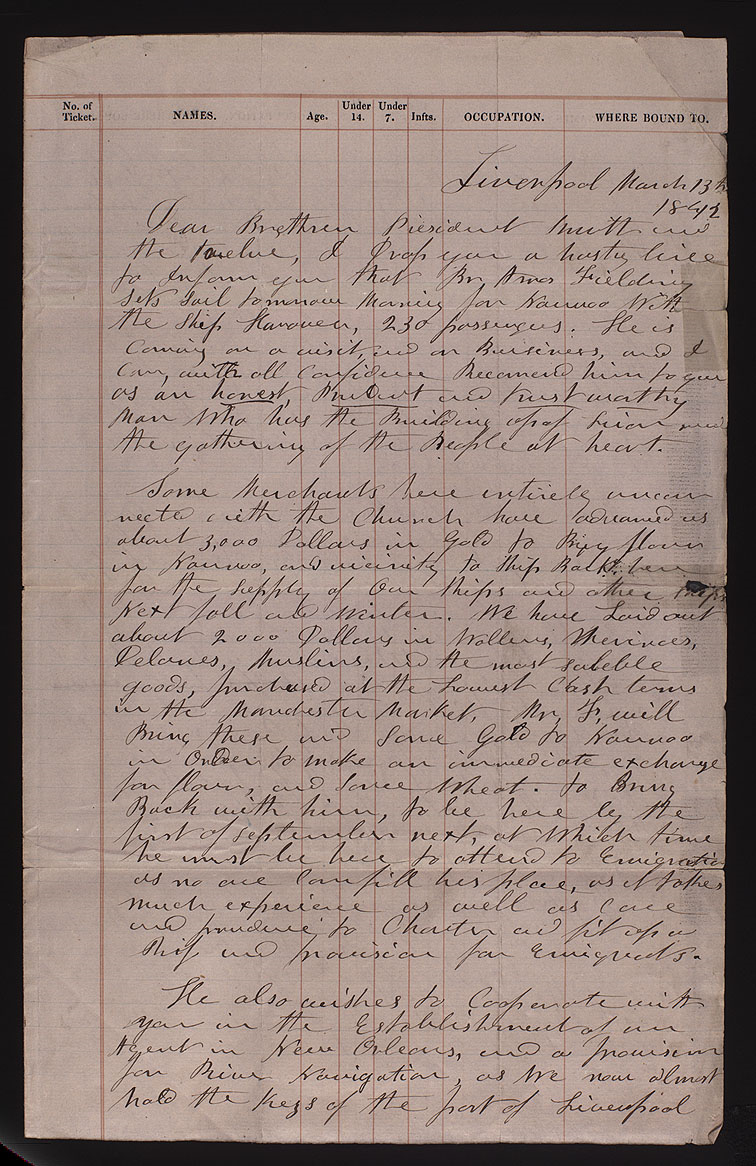 No. of Ticket. NAMES. Age. Under 14. Under 7. Infts. OCCUPATION. WHERE BOUND TO.
Liverpool March 13th
1842
Dear Brethren President Smith and
the Twelve, I Drop you a hasty line
to Inform you that Br Amos Fielding
sets sail tomorrow Morning for Nauvoo With
the Ship Hanover, 230 passengers. He is
Coming on a visit, and on Buisiness, and I
Can, with all Confidence Recomend him to you
as an honest, Prudent and trustworthy
Man Who has the Building up of Zion and
the gathering of the People at heart.
Some Merchants here entirely uncon
nected with the Church have advanced us
about 3,000 Dollars in Gold to Buy flour
in Nauvoo, and vicinity to Ship Back here
for the Supply of Our Ships and other ships
Next fall and Winter. We have Laid out
about 2000 Dollars in Wollens, Merinoes,
Delanes, Muslins, and the most saleble
goods, purchased at the Lowest Cash terms
in the Manchester Market, Mr F, will
Bring these and Some Gold to Nauvoo
in Order to make an immediate exchange
for flour, and some Wheat. to Bring
Back with him, to be here by the
first of September next, at Which time
he must be here to attend to Emigration
as no one Can fill his place, as it takes
much experience as well as Care
and prudence to Charter and fit up a
Ship and provision for Emigrants.
He also wishes to Cooperate with
you in the Establishment of an
Agent in New Orleans, and a provision
for River Navigation, as We now almost
hold the Keys of the port of Liverpool